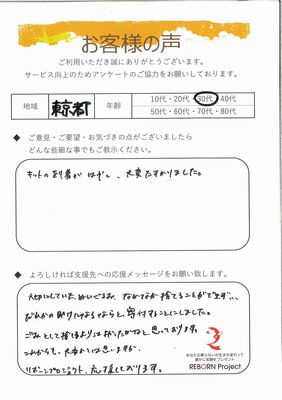 お客様の声
ご利用いただき誠にありがとうございます。
サービス向上のためアンケートのご協力をお願いしております。
地域 東京都 年齢 10代・20代・30代・40代
50代・60代・70代・80代
◆ ご意見・ご要望・お気づきの点がございましたら
どんな些細な事でもご教示ください。
キットの到着がはやく、大変たすかりました。
◆ よろしければ支援先への応援メッセージをお願い致します。
大切にしていた、ぬいぐるみ、なかなか捨てることができず、、
だれかの助けになるならと、寄付することにしました。
ごみとして捨てるよりはよかったかなと思っております。
これからも、大変かとは思いますが、
リボーンプロジェクト、応援しております。
あなたの要らないが生まれ変わって
誰かに笑顔をプレゼント
REBORN Project